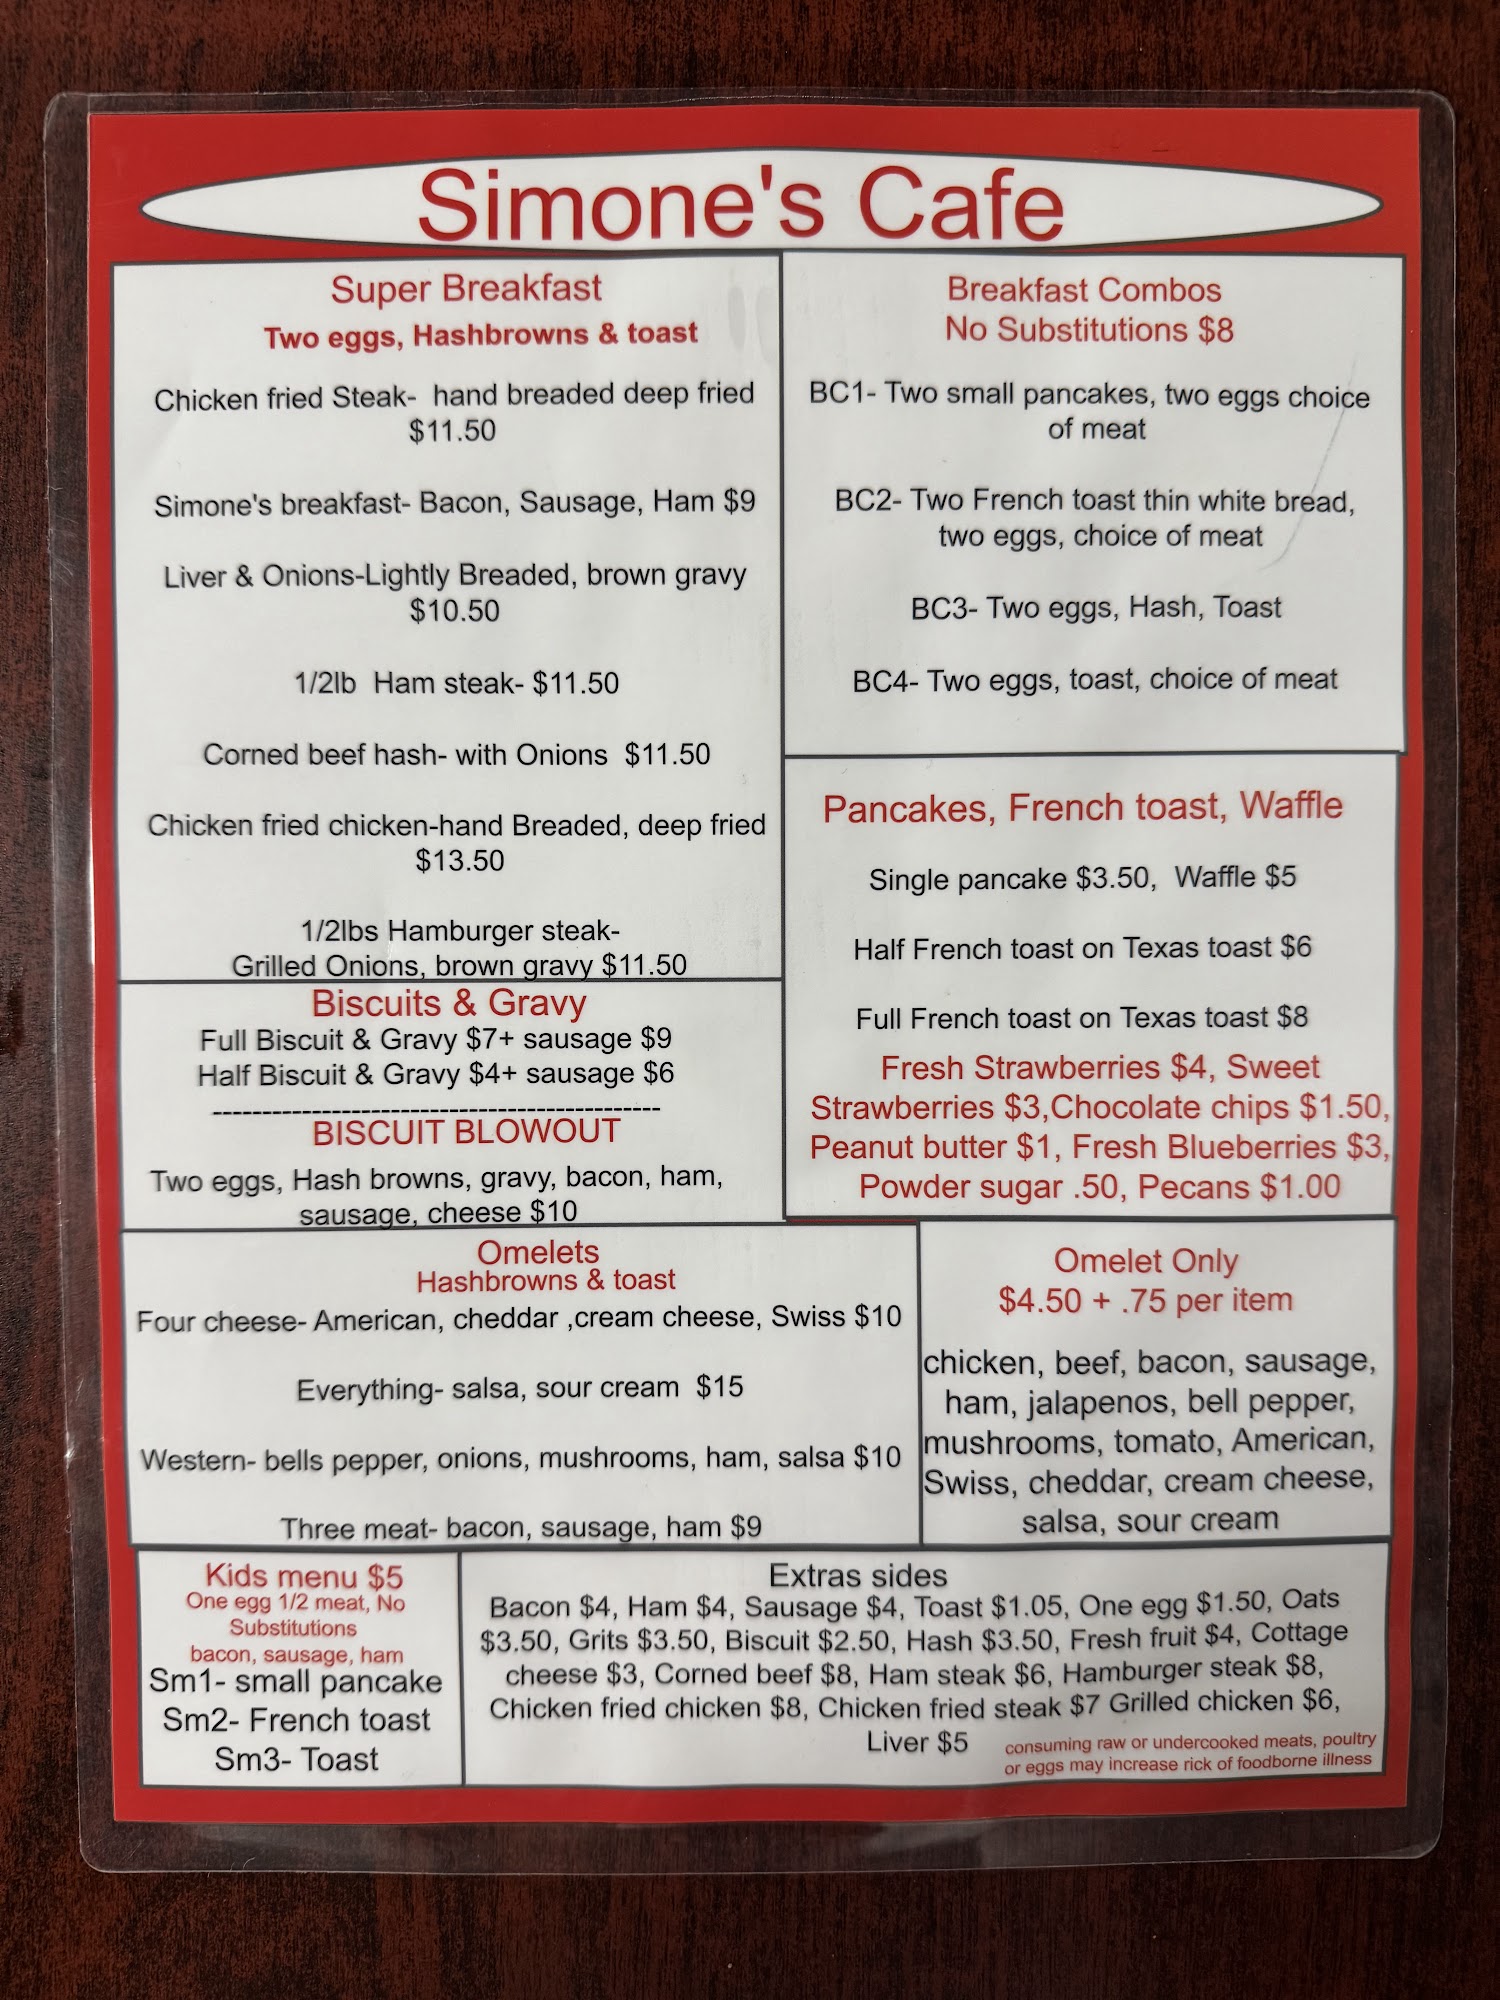 Simone's Cafe
Super Breakfast
Two eggs, Hashbrowns & toast
Chicken fried Steak- hand breaded deep fried
$11.50
Simone's breakfast- Bacon, Sausage, Ham $9
Liver & Onions-Lightly Breaded, brown gravy
$10.50
1/2lb Ham steak- $11.50
Corned beef hash- with Onions $11.50
Chicken fried chicken-hand Breaded, deep fried
$13.50
1/2lbs Hamburger steak-
Grilled Onions, brown gravy $11.50
Biscuits & Gravy
Full Biscuit & Gravy $7+ sausage $9
Half Biscuit & Gravy $4+ sausage $6
--------------------------------------------
BISCUIT BLOWOUT
Two eggs, Hash browns, gravy, bacon, ham,
sausage, cheese $10
Breakfast Combos
No Substitutions $8
BC1- Two small pancakes, two eggs choice
of meat
BC2- Two French toast thin white bread,
two eggs, choice of meat
BC3- Two eggs, Hash, Toast
BC4- Two eggs, toast, choice of meat
Pancakes, French toast, Waffle
Single pancake $3.50, Waffle $5
Half French toast on Texas toast $6
Full French toast on Texas toast $8
Fresh Strawberries $4, Sweet
Strawberries $3,Chocolate chips $1.50,
Peanut butter $1, Fresh Blueberries $3,
Powder sugar .50, Pecans $1.00
Omelets
Hashbrowns & toast
Four cheese- American, cheddar ,cream cheese, Swiss $10
Everything- salsa, sour cream $15
Western- bells pepper, onions, mushrooms, ham, salsa $10
Three meat- bacon, sausage, ham $9
Omelet Only
$4.50 + .75 per item
chicken, beef, bacon, sausage,
ham, jalapenos, bell pepper,
mushrooms, tomato, American,
Swiss, cheddar, cream cheese,
salsa, sour cream
Kids menu $5
One egg 1/2 meat, No
Substitutions
bacon, sausage, ham
Sm1- small pancake
Sm2- French toast
Sm3- Toast
Extras sides
Bacon $4, Ham $4, Sausage $4, Toast $1.05, One egg $1.50, Oats
$3.50, Grits $3.50, Biscuit $2.50, Hash $3.50, Fresh fruit $4, Cottage
cheese $3, Corned beef $8, Ham steak $6, Hamburger steak $8,
Chicken fried chicken $8, Chicken fried steak $7 Grilled chicken $6,
Liver $5
consuming raw or undercooked meats, poultry
or eggs may increase rick of foodborne illness